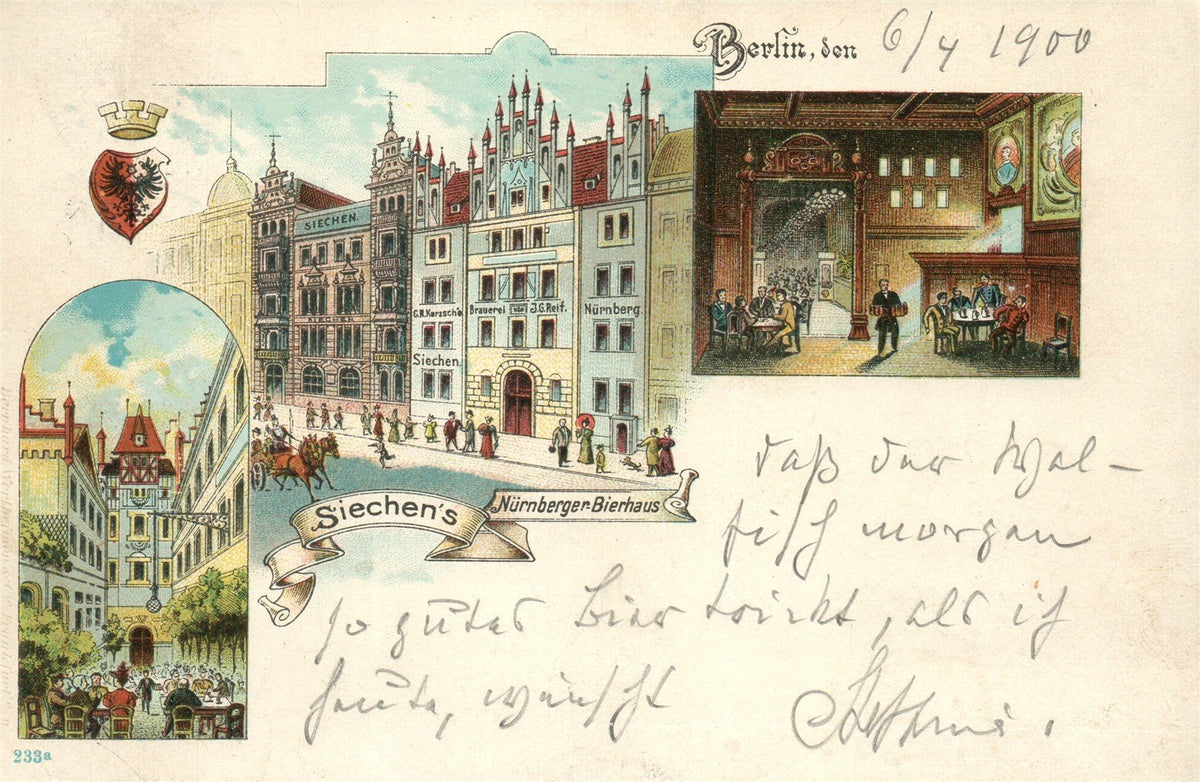 Berlin, den 6/4 1900
SIECHEN.
G.N.Kurzsch's
Brauerei
J.G.Reif.
Nürnberg
Siechen.
Siechen's
Nürnberger-Bierhaus
daß der Wal-
fisch morgen
so gutes Bier trinkt, als ich
heute, wünscht
233a